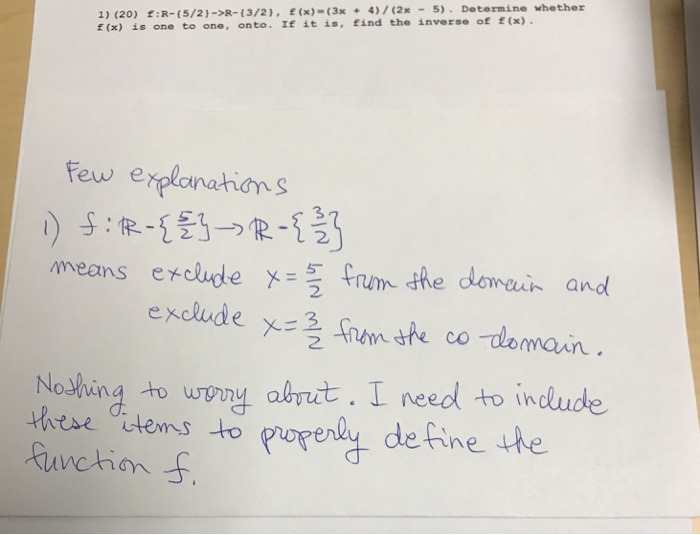 1) (20) f:R-{5/2}->R-{3/2}, f(x)=(3x + 4)/(2x - 5). Determine whether
f(x) is one to one, onto. If it is, find the inverse of f(x).
Few explanations
1) f: ℝ-{5/2} → ℝ-{3/2}
means exclude x = 5/2 from the domain and
exclude x = 3/2 from the co-domain.
Nothing to worry about. I need to include
these items to properly define the
function f.